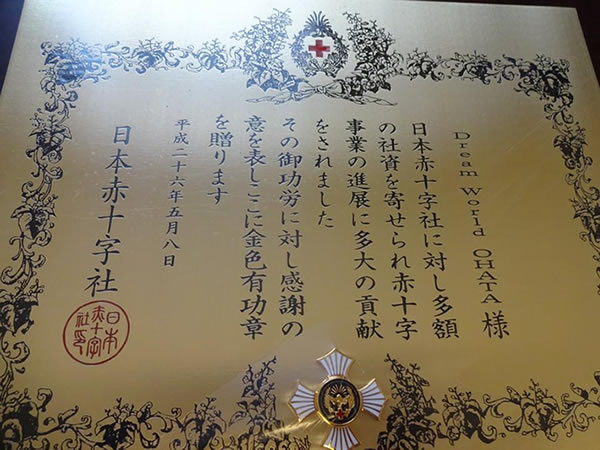 Dream World OHATA 様
日本赤十字社に対し多額
の社資を寄せられ赤十字
事業の進展に多大の貢献
をされました
その御功労に対し感謝の
意を表しここに金色有功章
を贈ります
平成二十六年五月八日
日本赤十字社
日本
赤十字
社印